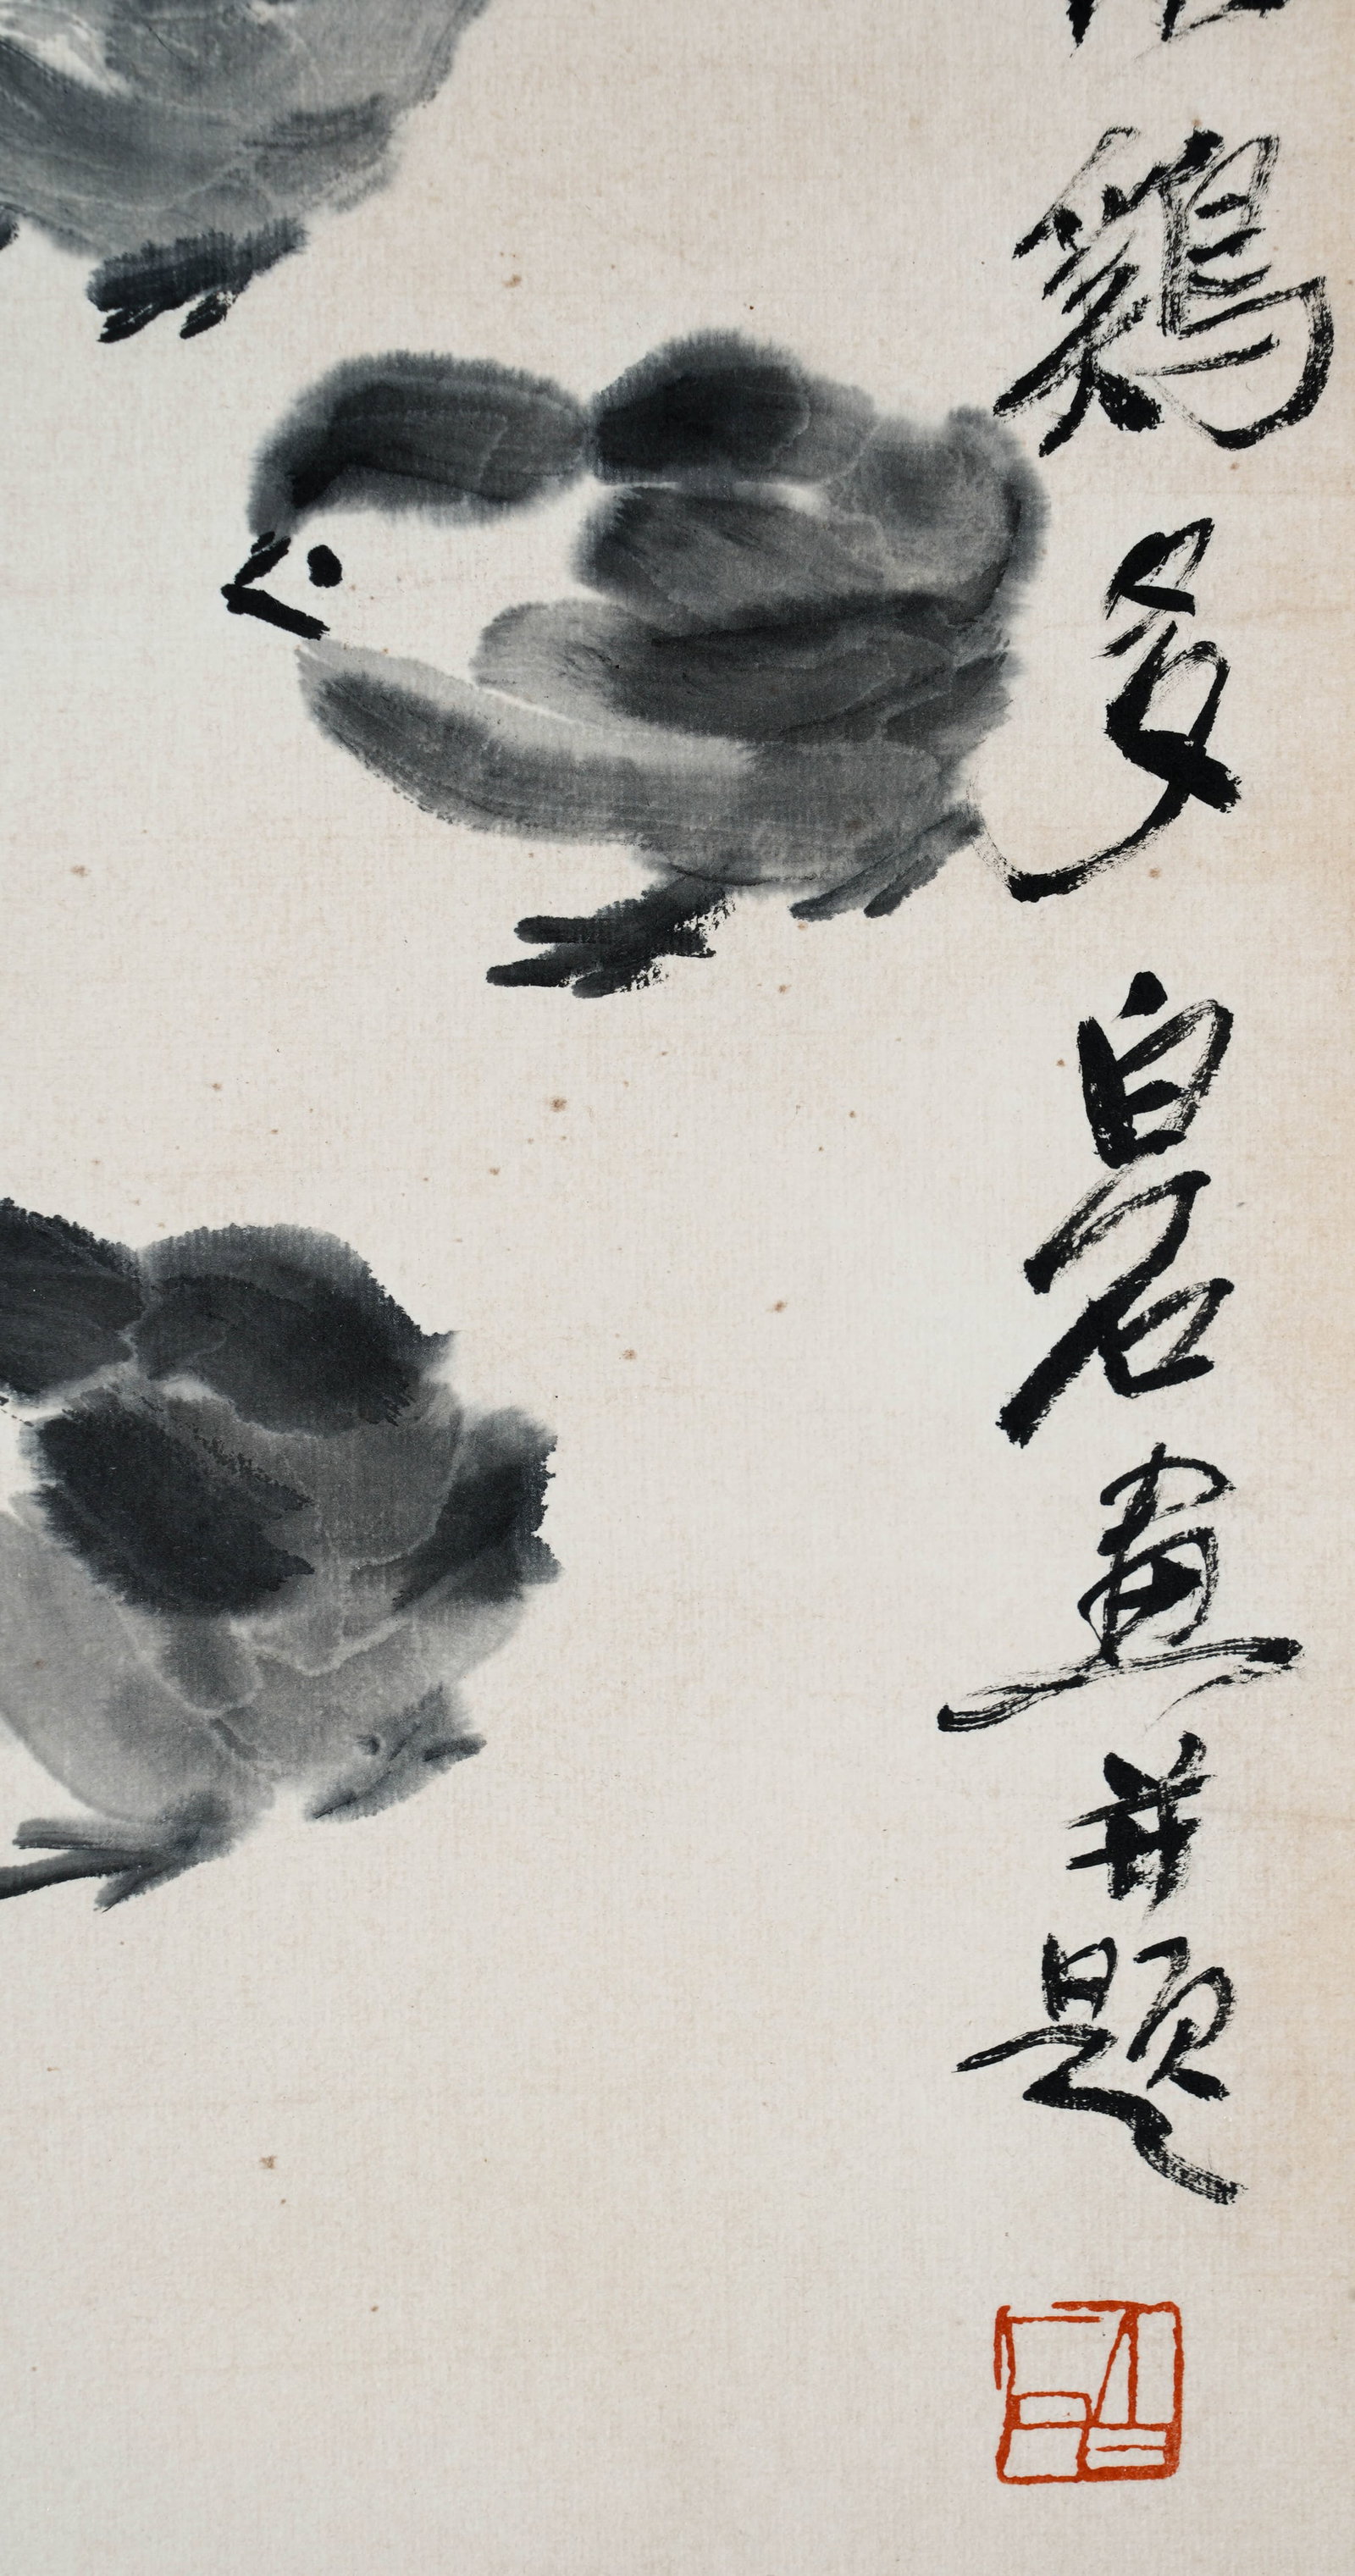 鷄多白石畫并題
白石